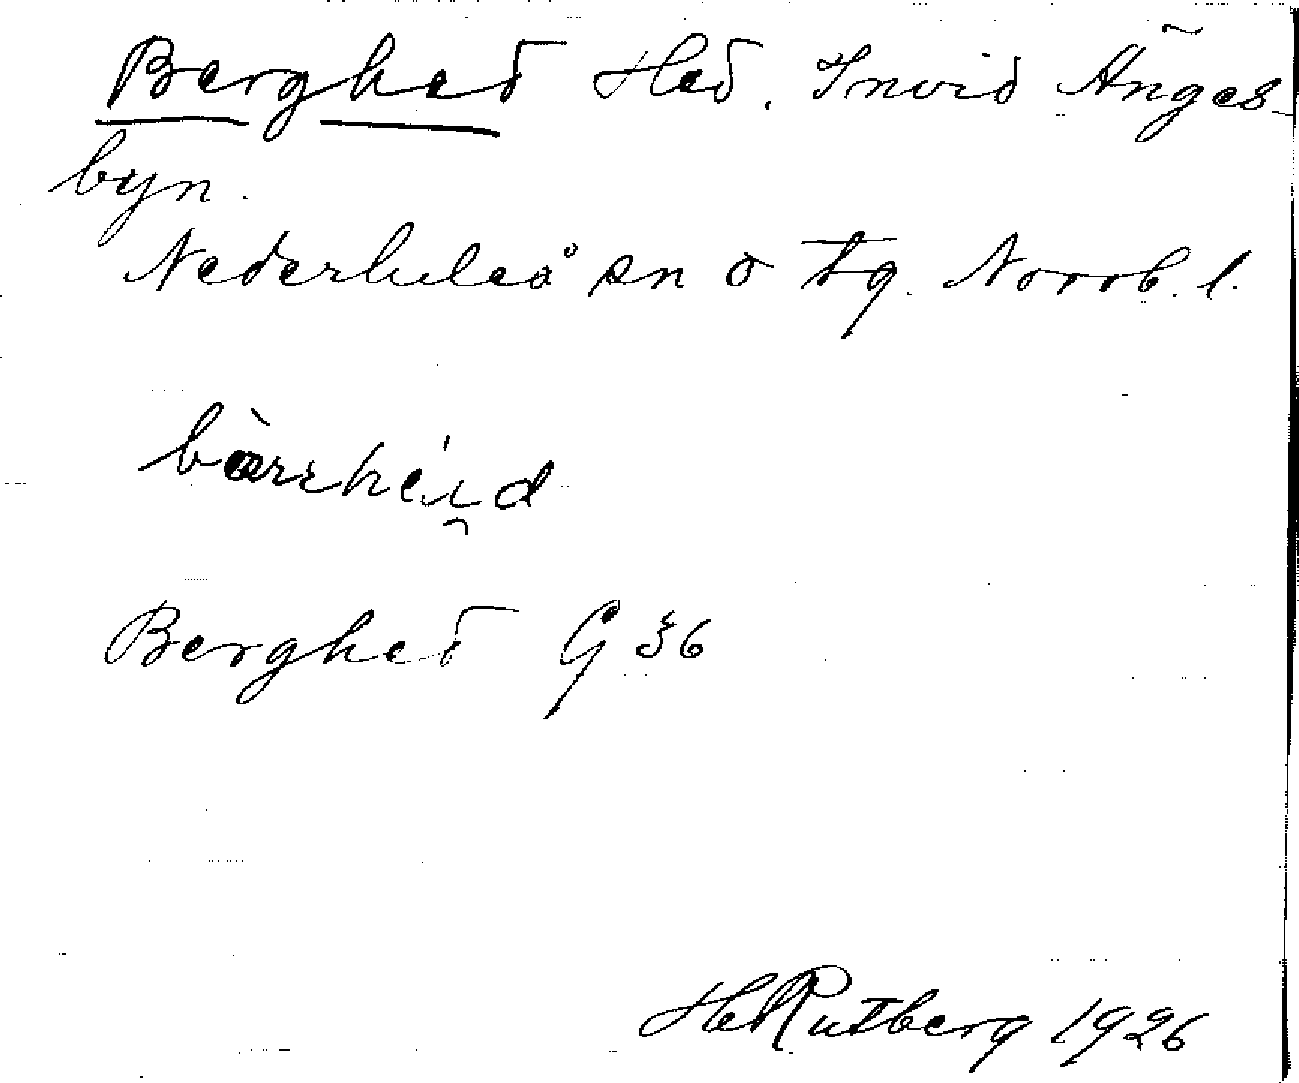 Berghed Hed. Invid Änges-
byn.
Nederluleå sn o tg. Norrb. l.
Berghed G 36
H Rutberg 1926